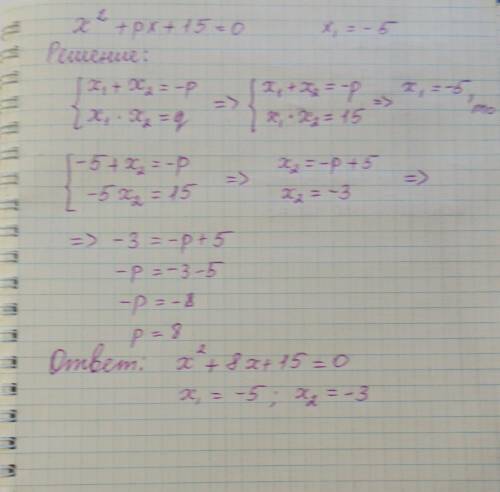 x² + px + 15 = 0 x₁ = -5
Решение:
{ x₁ + x₂ = -p => { x₁ + x₂ = -p => x₁ = -5,
{ x₁ · x₂ = q { x₁ · x₂ = 15 то
{ -5 + x₂ = -p => x₂ = -p + 5 =>
{ -5x₂ = 15 x₂ = -3
=> -3 = -p + 5
-p = -3 - 5
-p = -8
p = 8
Ответ: x² + 8x + 15 = 0
x₁ = -5; x₂ = -3